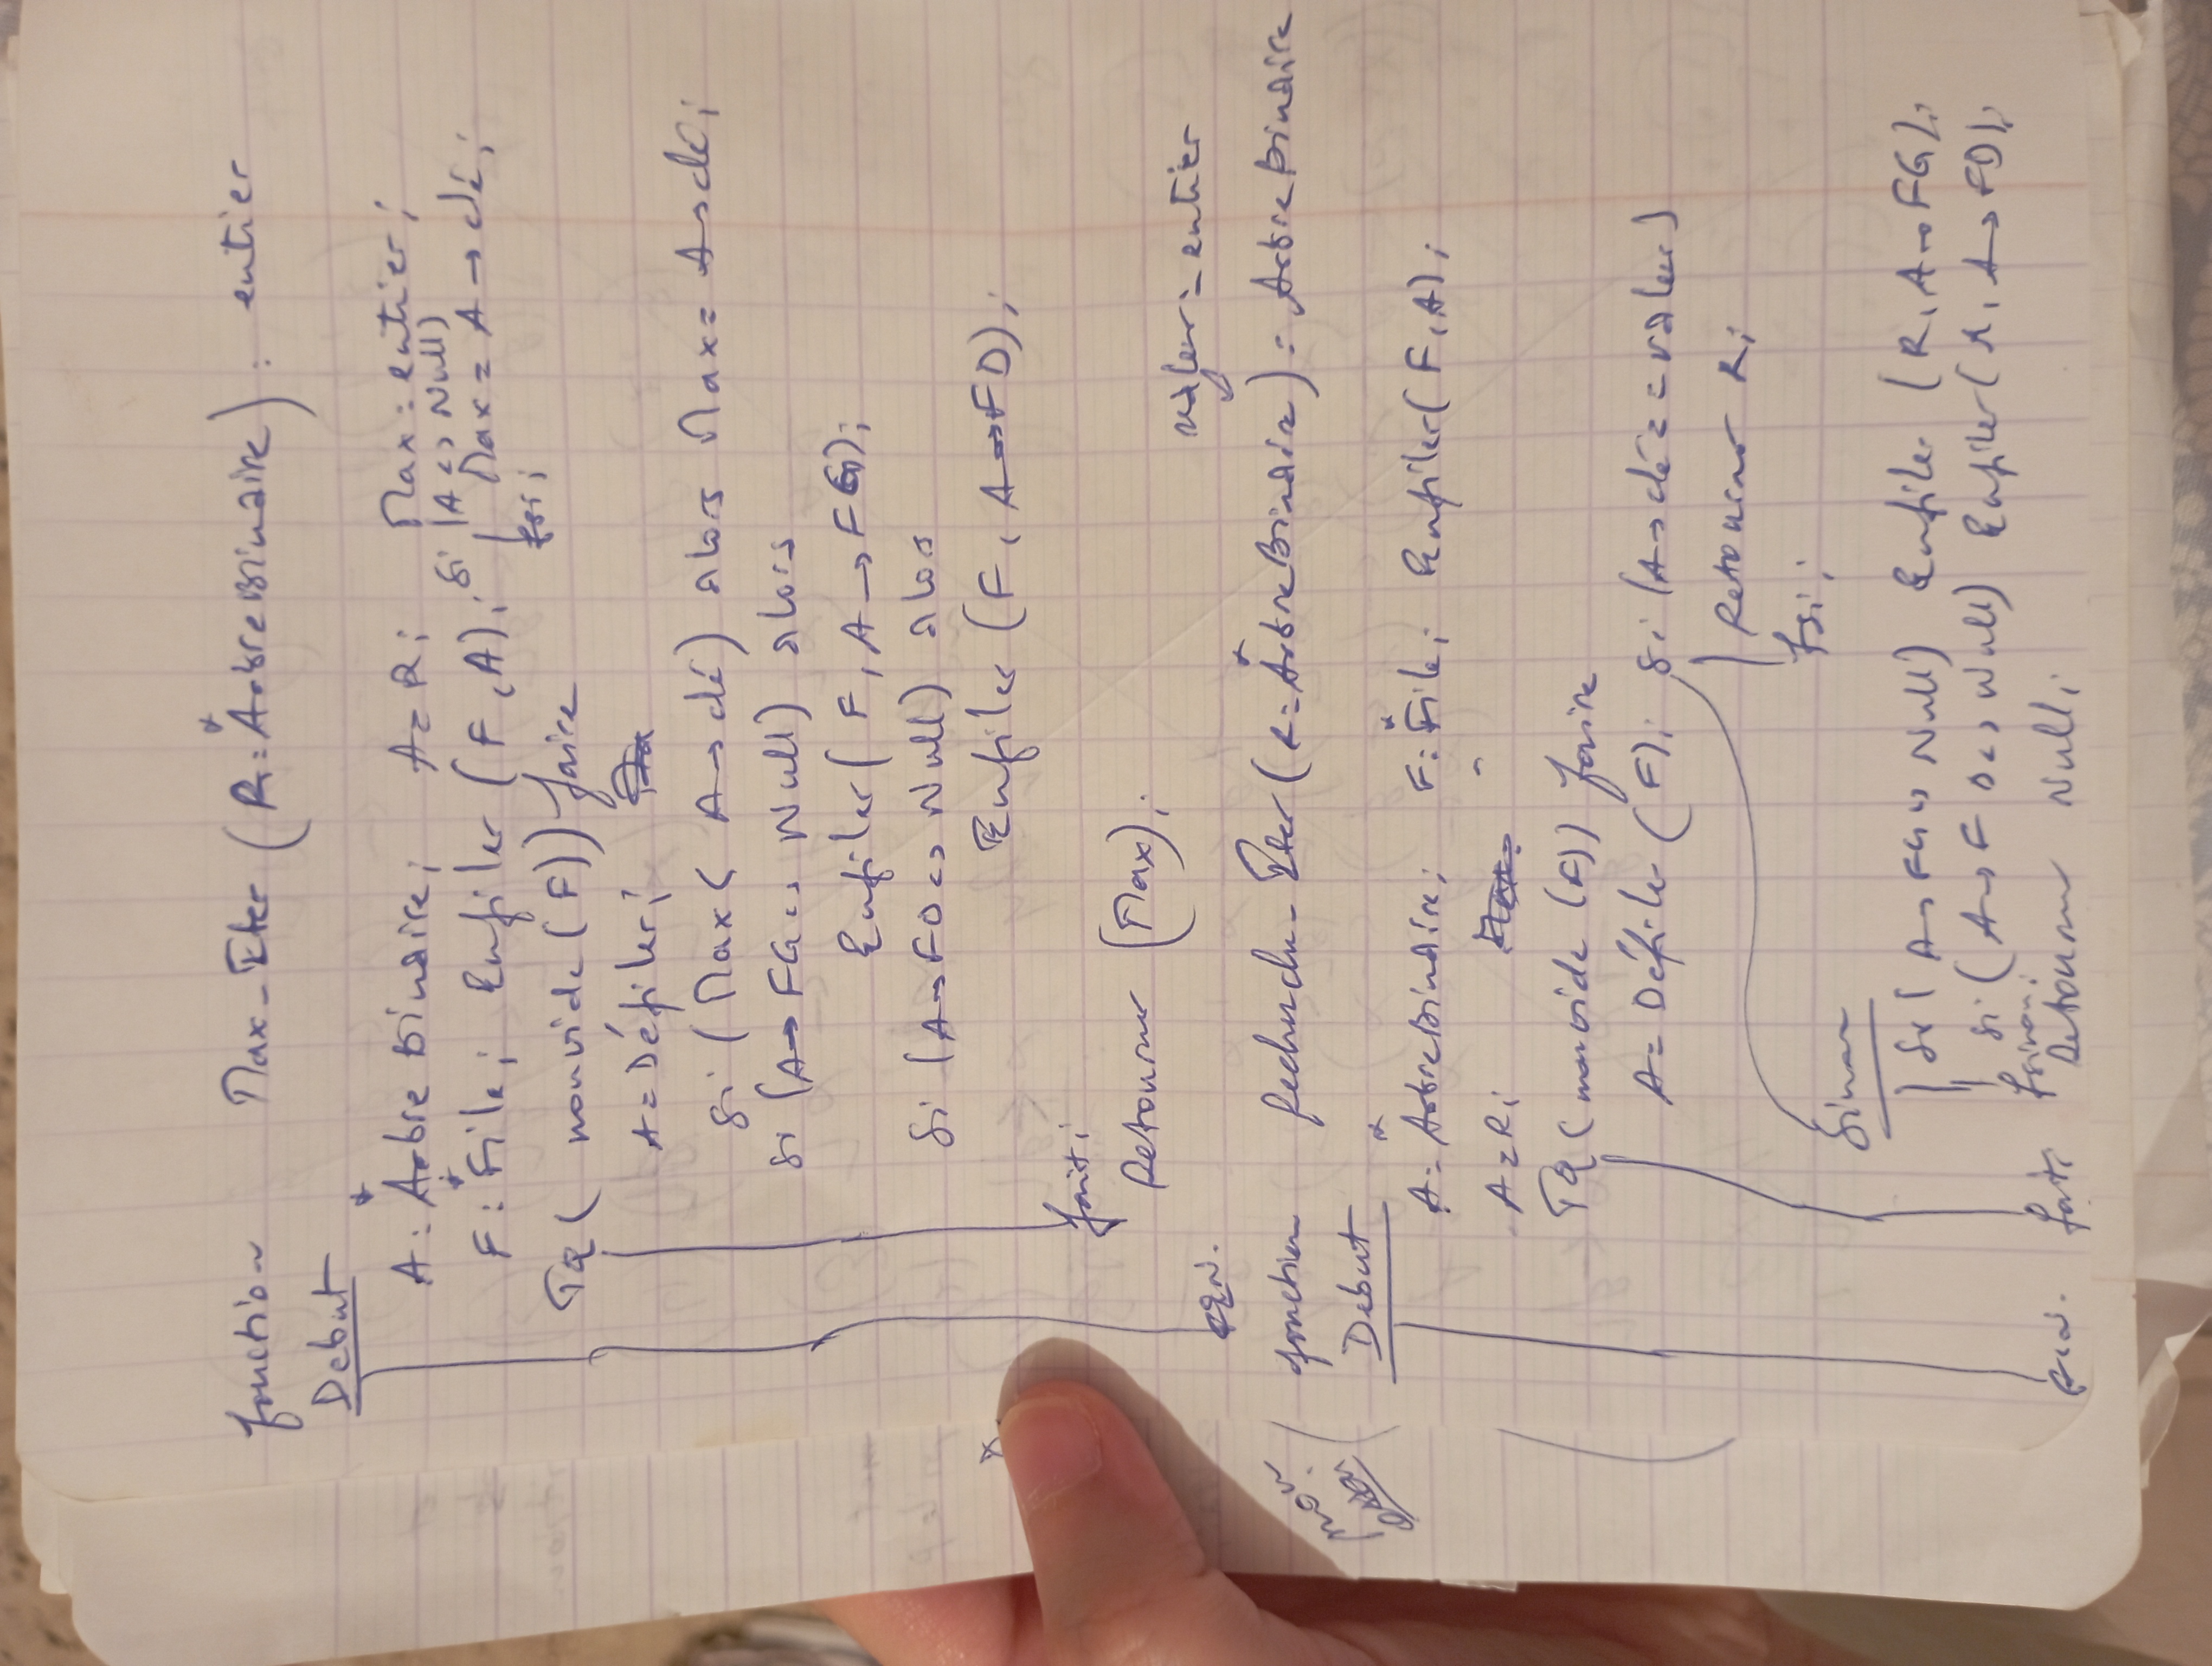 fonction Max_Iter (R: *ArbreBinaire) : entier
Debut
A: *ArbreBinaire; A=R; Max: entier;
F: *File; Enfiler (F,A); Si (A<>Null)
Max = A→clé;
fsi;
TQ ( nonvide (F)) faire
A = Défiler;
Si (Max < A→clé) alors Max = A→clé;
Si (A→FG <> Null) alors
Enfiler (F, A→FG);
Si (A→FD <> Null) alors
Enfiler (F, A→FD);
fait;
Retourner (Max);
FIN.
valeur: entier
fonction Recherche_Iter (R: *ArbreBinaire) : ArbreBinaire
Debut
A: *ArbreBinaire; F: *File; Enfiler (F,A);
A=R;
TQ (nonvide (F)) faire
A = Défiler (F); Si (A→clé == valeur)
Retourner R;
fsi;
Sinon
Si (A→FG <> Null) Enfiler (R, A→FG);
Si (A→FD <> Null) Enfiler (R, A→FD);
fsinon;
fait; Retourner Null;
FIN.